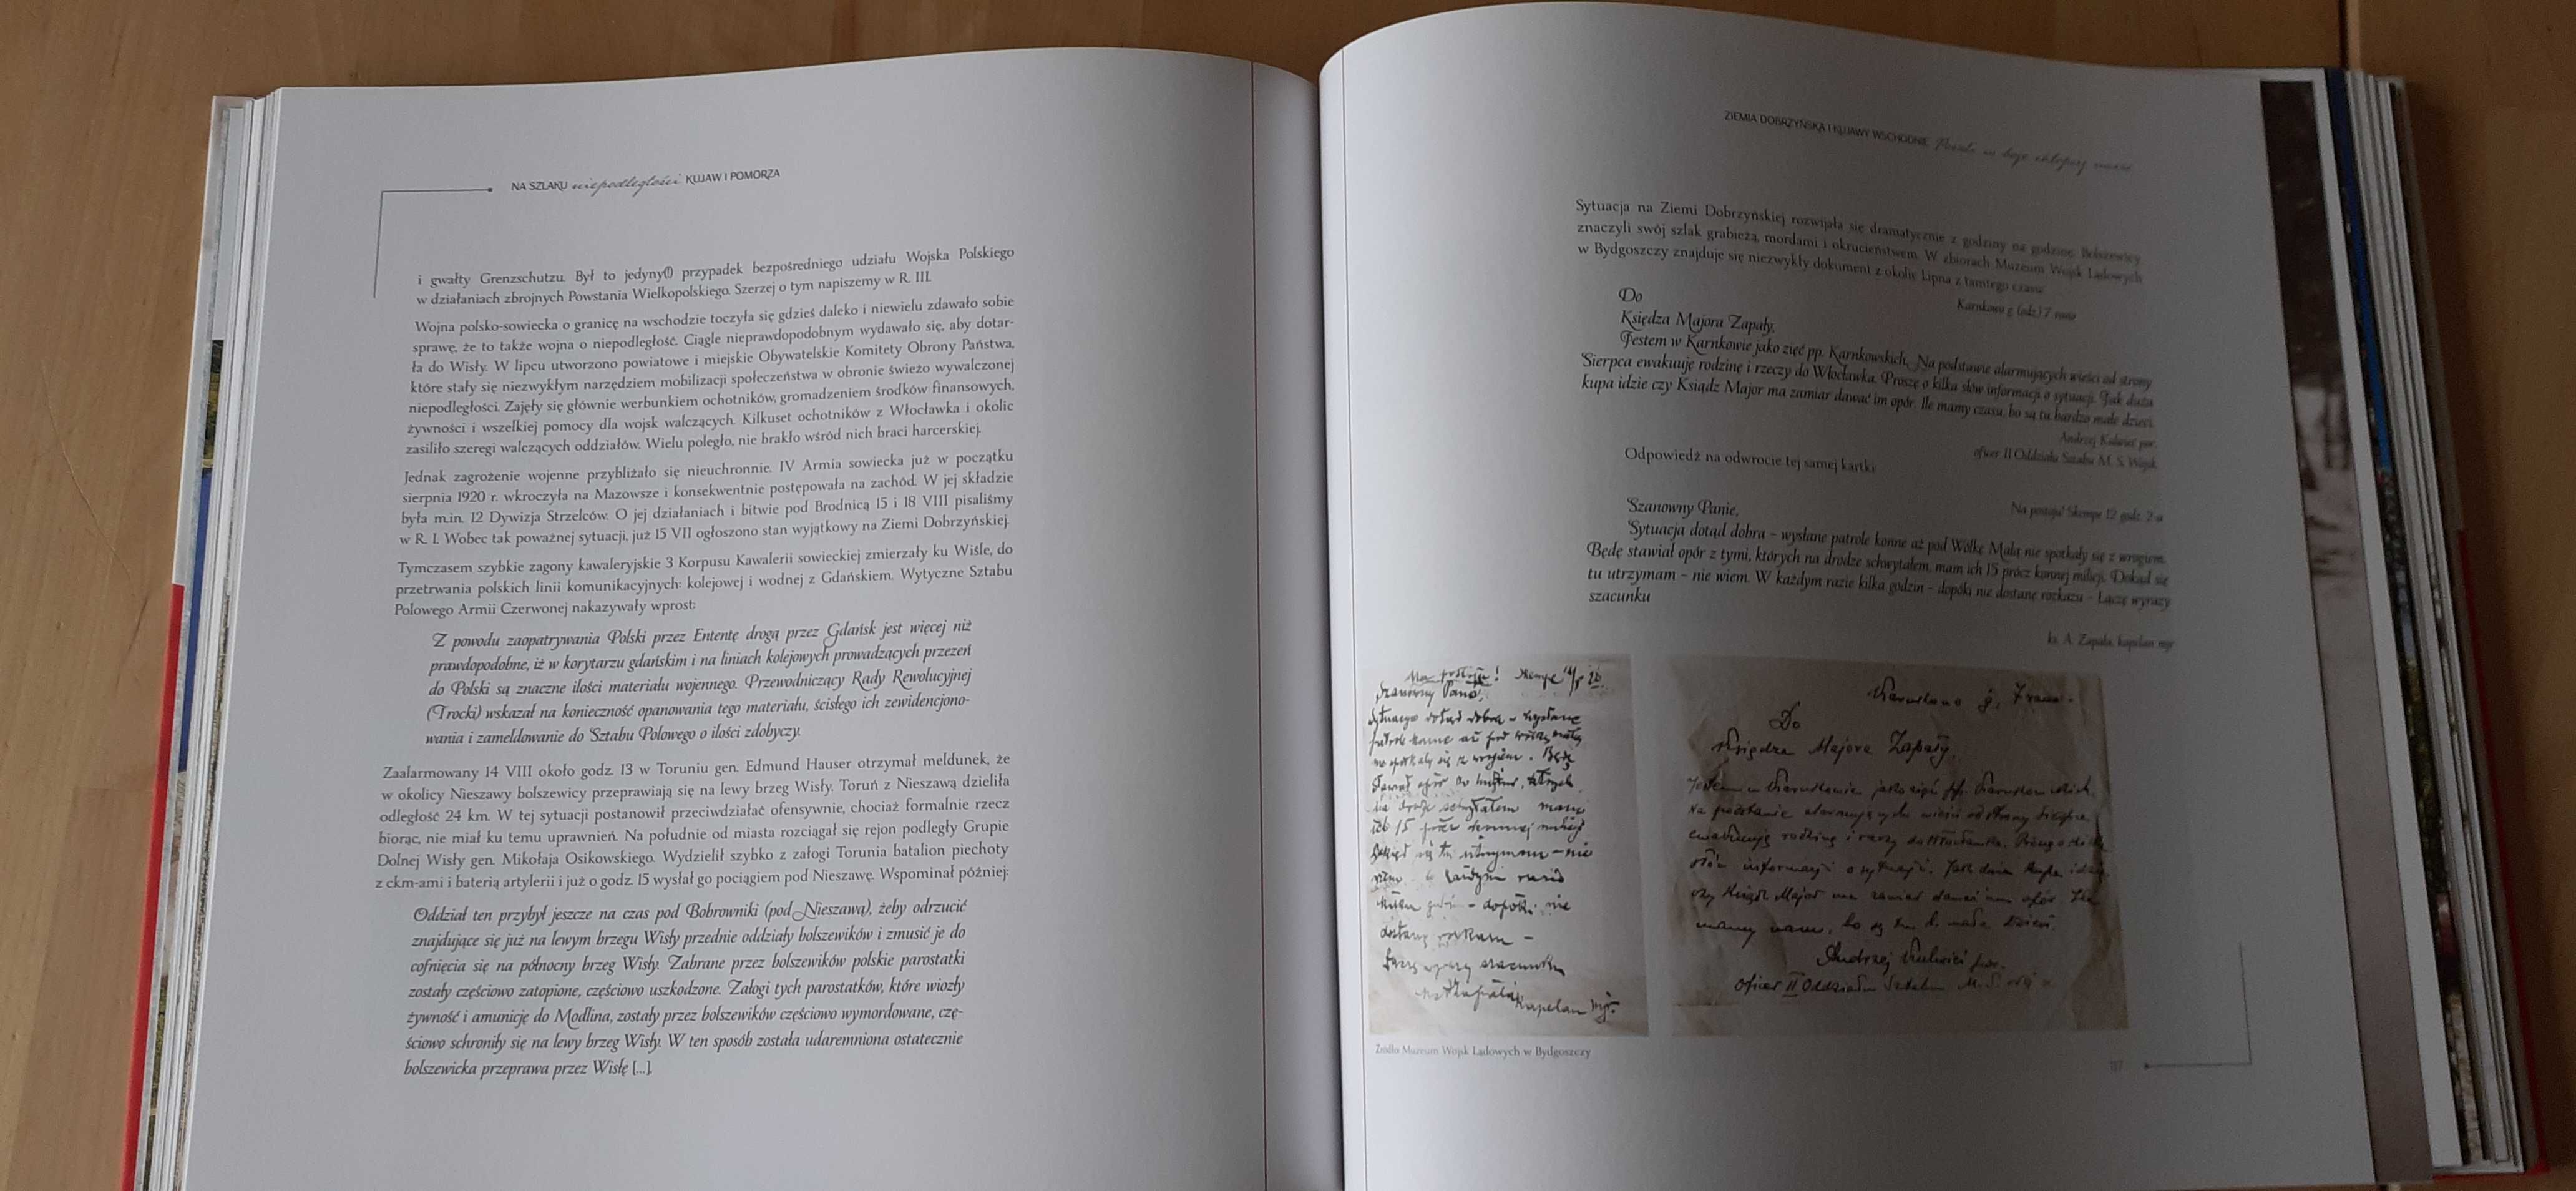 NA SZLAKU niepodległości KUJAW I POMORZA
i gwałty Grenzschutzu. Był to jedyny(!) przypadek bezpośredniego udziału Wojska Polskiego
w działaniach zbrojnych Powstania Wielkopolskiego. Szerzej o tym napiszemy w R. III.
Wojna polsko-sowiecka o granicę na wschodzie toczyła się gdzieś daleko i niewielu zdawało sobie
sprawę, że to także wojna o niepodległość. Ciągle nieprawdopodobnym wydawało się, aby dotar-
ła do Wisły. W lipcu utworzono powiatowe i miejskie Obywatelskie Komitety Obrony Państwa,
które stały się niezwykłym narzędziem mobilizacji społeczeństwa w obronie świeżo wywalczonej
niepodległości. Zajęły się głównie werbunkiem ochotników, gromadzeniem środków finansowych,
żywności i wszelkiej pomocy dla wojsk walczących. Kilkuset ochotników z Włocławka i okolic
zasiliło szeregi walczących oddziałów. Wielu poległo, nie brakło wśród nich braci harcerskiej.
Jednak zagrożenie wojenne przybliżało się nieuchronnie. IV Armia sowiecka już w początku
sierpnia 1920 r. wkroczyła na Mazowsze i konsekwentnie postępowała na zachód. W jej składzie
była m.in. 12 Dywizja Strzelców. O jej działaniach i bitwie pod Brodnicą 15 i 18 VIII pisaliśmy
w R. I. Wobec tak poważnej sytuacji, już 15 VII ogłoszono stan wyjątkowy na Ziemi Dobrzyńskiej.
Tymczasem szybkie zagony kawaleryjskie 3 Korpusu Kawalerii sowieckiej zmierzały ku Wiśle, do
przetrwania polskich linii komunikacyjnych: kolejowej i wodnej z Gdańskiem. Wytyczne Sztabu
Polowego Armii Czerwonej nakazywały wprost:
Z powodu zaopatrywania Polski przez Ententę drogą przez Gdańsk jest więcej niż
prawdopodobne, iż w korytarzu gdańskim i na liniach kolejowych prowadzących przezeń
do Polski są znaczne ilości materiału wojennego. Przewodniczący Rady Rewolucyjnej
(Trocki) wskazał na konieczność opanowania tego materiału, ścisłego ich zewidencjono-
wania i zameldowanie do Sztabu Polowego o ilości zdobyczy.
Zaalarmowany 14 VIII około godz. 13 w Toruniu gen. Edmund Hauser otrzymał meldunek, że
w okolicy Nieszawy bolszewicy przeprawiają się na lewy brzeg Wisły. Toruń z Nieszawą dzieliła
odległość 24 km. W tej sytuacji postanowił przeciwdziałać ofensywnie, chociaż formalnie rzecz
biorąc, nie miał ku temu uprawnień. Na południe od miasta rozciągał się rejon podległy Grupie
Dolnej Wisły gen. Mikołaja Osikowskiego. Wydzielił szybko z załogi Torunia batalion piechoty
z ckm-ami i baterią artylerii i już o godz. 15 wysłał go pociągiem pod Nieszawę. Wspominał później:
Oddział ten przybył jeszcze na czas pod Bobrowniki (pod Nieszawą), żeby odrzucić
znajdujące się już na lewym brzegu Wisły przednie oddziały bolszewików i zmusić je do
cofnięcia się na północny brzeg Wisły. Zabrane przez bolszewików polskie parostatki
zostały częściowo zatopione, częściowo uszkodzone. Załogi tych parostatków, które wiozły
żywność i amunicję do Modlina, zostały przez bolszewików częściowo wymordowane, czę-
ściowo schroniły się na lewy brzeg Wisły. W ten sposób została udaremniona ostatecznie
bolszewicka przeprawa przez Wisłę [...].
ZIEMIA DOBRZYŃSKA I KUJAWY WSCHODNIE
Sytuacja na Ziemi Dobrzyńskiej rozwijała się dramatycznie z godziny na godzinę. Bolszewicy
znaczyli swój szlak grabieżą, mordami i okrucieństwem. W zbiorach Muzeum Wojsk Lądowych
w Bydgoszczy znajduje się niezwykły dokument z okolic Lipna z tamtego czasu:
Karnkowo g. (odz.) 7 rano
Do
Księdza Majora Zapały,
Jestem w Karnkowie jako zięć pp. Karnkowskich. Na podstawie alarmujących wieści od strony
Sierpca ewakuuję rodzinę i rzeczy do Włocławka. Proszę o kilka słów informacji o sytuacji. Jak duża
kupa idzie czy Ksiądz Major ma zamiar dawać im opór. Ile mamy czasu, bo są tu bardzo małe dzieci.
Andrzej Kulwieć por.
oficer II Oddziału Sztabu M. S. Wojsk.
Odpowiedź na odwrocie tej samej kartki:
Na postoju! Skempe 12 godz. 2-a
Szanowny Panie,
Sytuacja dotąd dobra – wysłane patrole konne aż pod Wólkę Małą nie spotkały się z wrogiem.
Będę stawiał opór z tymi, których na drodze schwytałem, mam ich 15 prócz konnej milicji. Dokąd się
tu utrzymam – nie wiem. W każdym razie kilka godzin – dopóki nie dostanę rozkazu – Łączę wyrazy
szacunku
ks. A. Zapała, kapelan mjr
Szanowny Panie,
sytuacja dotąd dobra – wysłane
patrole konne aż pod Wólkę Małą
nie spotkały się z wrogiem. Będę
na drodze schwytałem mam
ich 15 prócz konnej milicji
Dokąd się tu utrzymam – nie
wiem. W każdym razie
kilka godzin – dopóki nie
dostanę rozkazu –
Łączę wyrazy szacunku
kapelan mjr.
Karnkowo g. 7 rano.
Do
Księdza Majora Zapały.
Jestem w Karnkowie jako zięć pp. Karnkowskich.
Na podstawie alarmujących wieści od strony Sierpca
ewakuuję rodzinę i rzeczy do Włocławka. Proszę o kilka
słów informacji o sytuacji. Jak duża kupa idzie
czy Ksiądz Major ma zamiar dawać im opór. Ile
mamy czasu, bo są tu b. małe dzieci.
Andrzej Kulwieć por.
oficer II Oddziału Sztabu M. S.
Źródło: Muzeum Wojsk Lądowych w Bydgoszczy